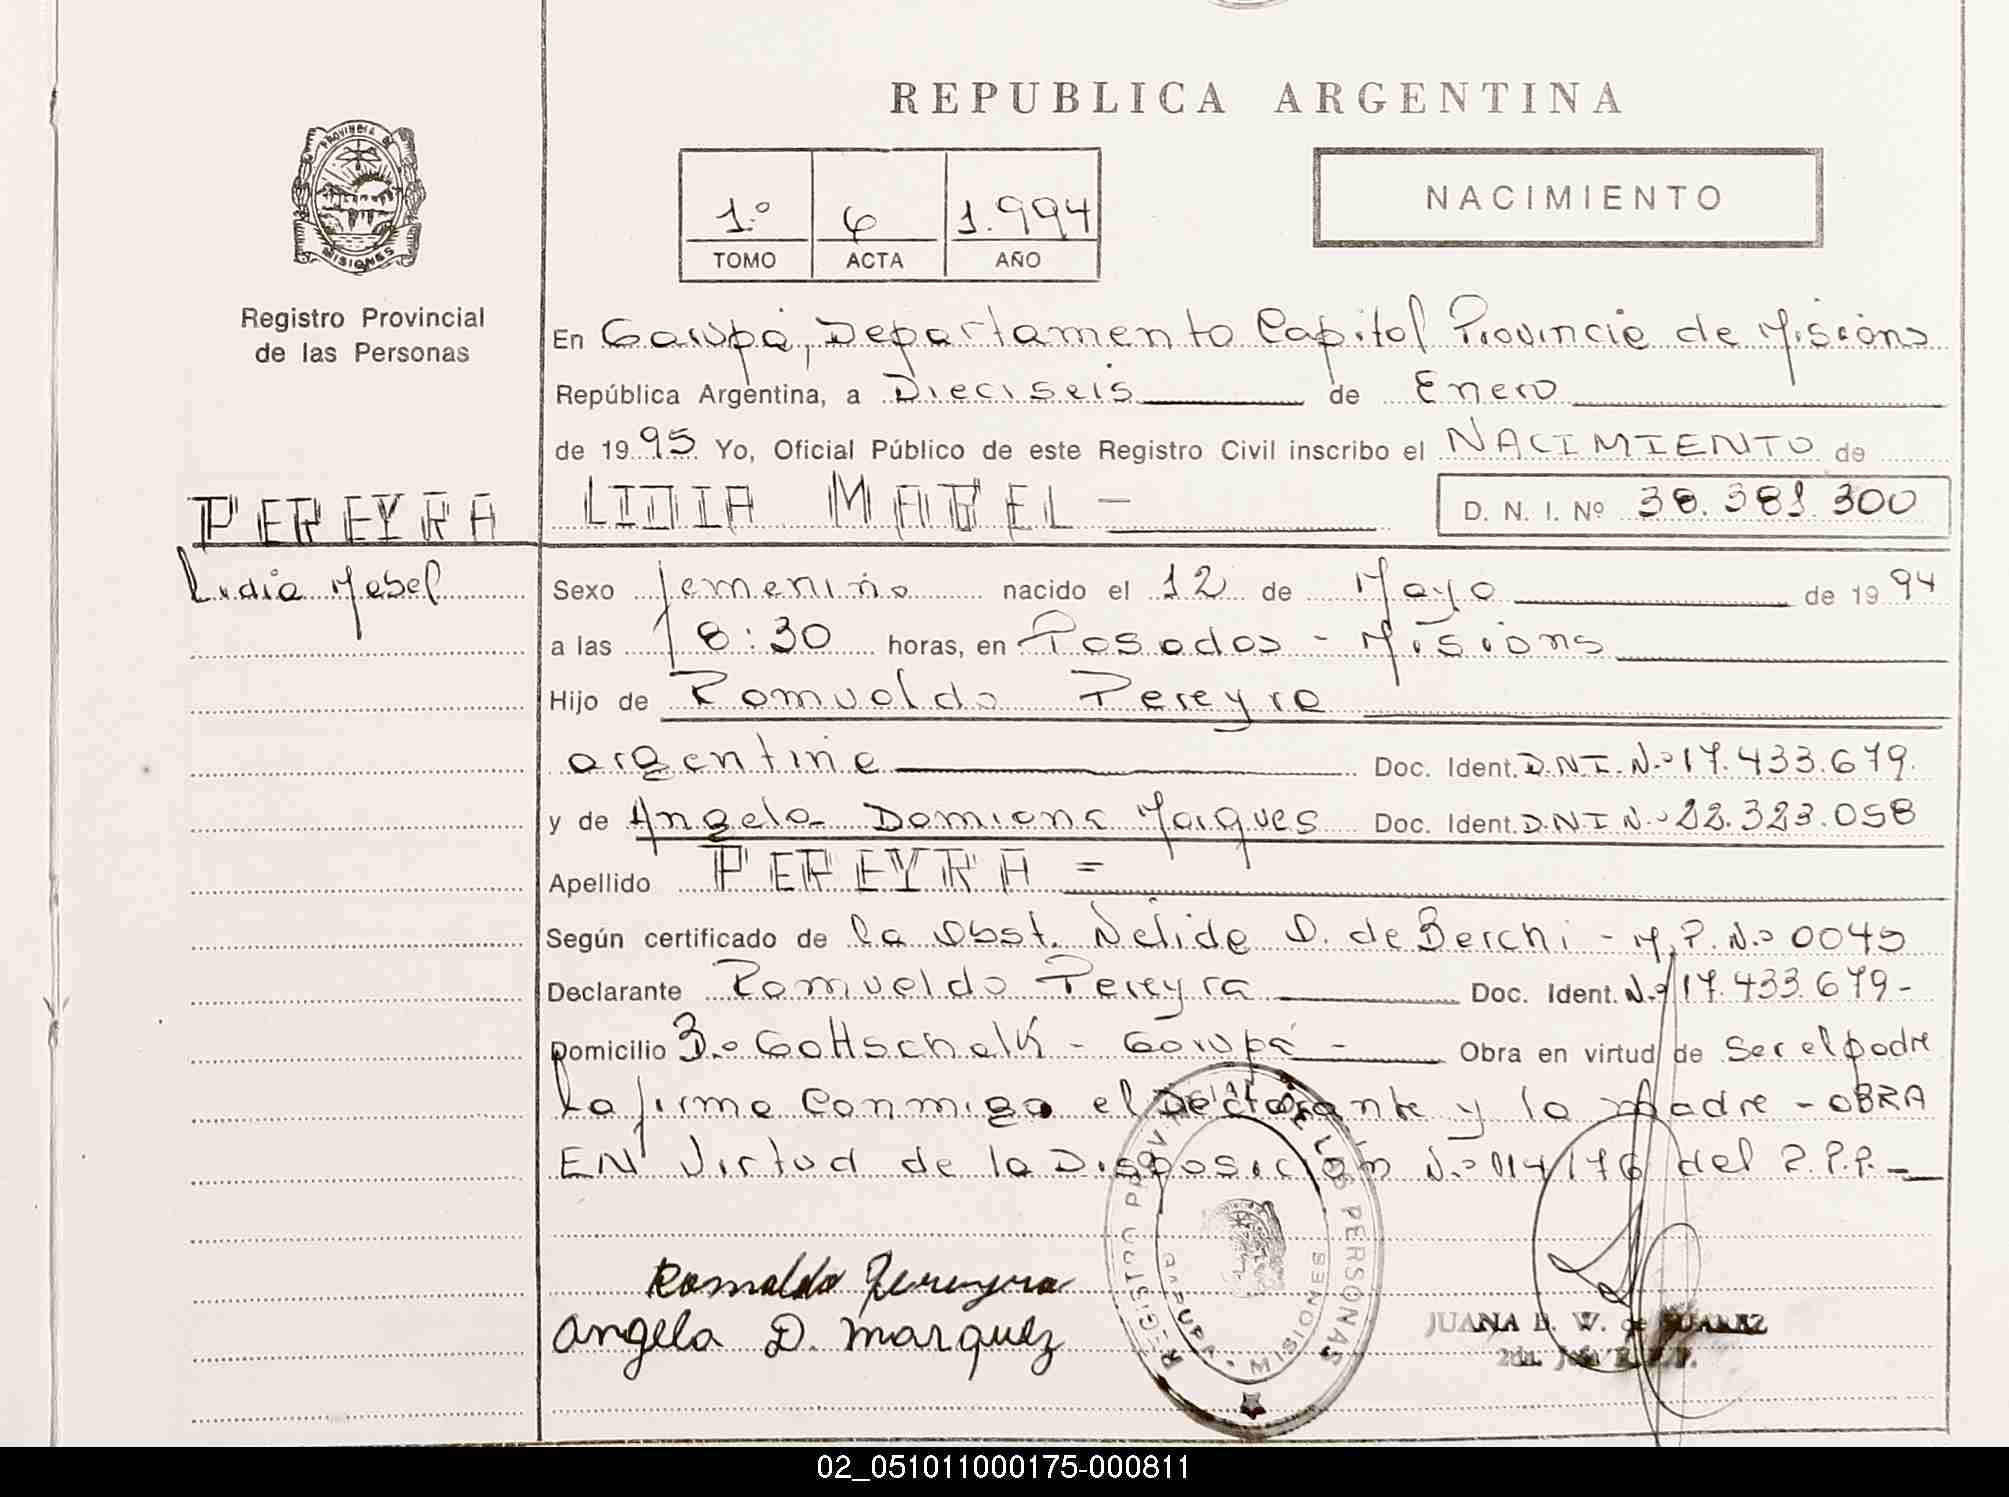 REPUBLICA ARGENTINA
PROVINCIA DE
MISIONES
Registro Provincial
de las Personas
1.º 6 1.994
TOMO ACTA AÑO
NACIMIENTO
En Garupá, Departamento Capital Provincia de Misiones
República Argentina, a Dieciseis de Enero
de 1995 Yo, Oficial Público de este Registro Civil inscribo el NACIMIENTO de
PEREYRA LIDIA MABEL — D. N. I. Nº 38.381.300
Lidia Mabel
Sexo femenino nacido el 12 de Mayo de 1994
a las 18:30 horas, en Posadas - Misiones
Hijo de Romualdo Pereyra
argentina Doc. Ident. D.N.I. N.º 17.433.679.
y de Angela Damiana Marques Doc. Ident. D.N.I N.º 22.323.058
Apellido PEREYRA =
Según certificado de la Obst. Nelida D. de Berchi - M.P. N.º 0045
Declarante Romualdo Pereyra Doc. Ident. N.º 17.433.679-
Domicilio B.º Gottschalk - Garupá - Obra en virtud de Ser el padre
La firma Conmigo el Declarante y la Madre - OBRA
EN Virtud de la Disposición N.º 114/76 del R.P.P. -
Romaldo Pereyra
Angela D. Marquez
REGISTRO PROVINCIAL DE LAS PERSONAS
GARUPA • MISIONES
JUANA B. W. de SUAREZ
02_051011000175-000811